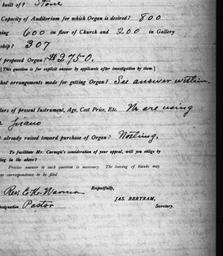 built of? Stone
Capacity of Auditorium for which Organ is desired? 800
600 on floor of Church and 200 in Gallery
ship? 307
f proposed Organ? $2750.
[This question is for explicit answer by applicants after investigation by them]
what arrangements made for getting Organ? See answer within
lars of present Instrument, Age, Cost Price, Etc. We are using
a Piano
t already raised toward purchase of Organ? Nothing.
To facilitate Mr. Carnegie's consideration of your appeal, will you oblige by
ing in the above?
Precise answer to each question is necessary. The leaving of blanks may
correspondence to be filed
Respectfully,
Rev. E.
JAS. BERTRAM,
esignation Pastor Secretary.